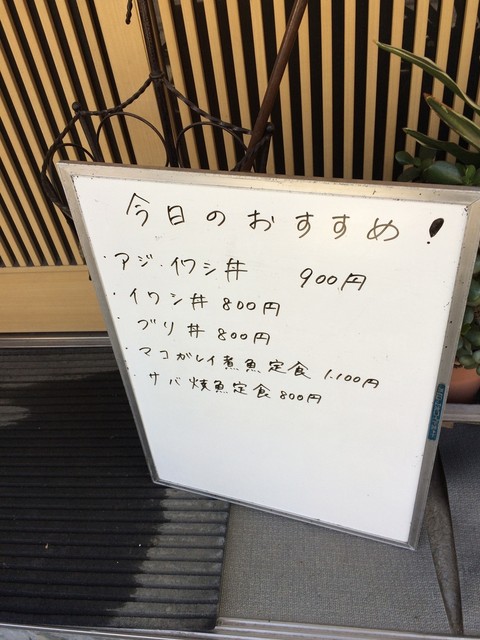 今日のおすすめ!
・アジ・イワシ丼 900円
・イワシ丼 800円
・ブリ丼 800円
・マコガレイ煮魚定食 1.100円
・サバ焼魚定食 800円